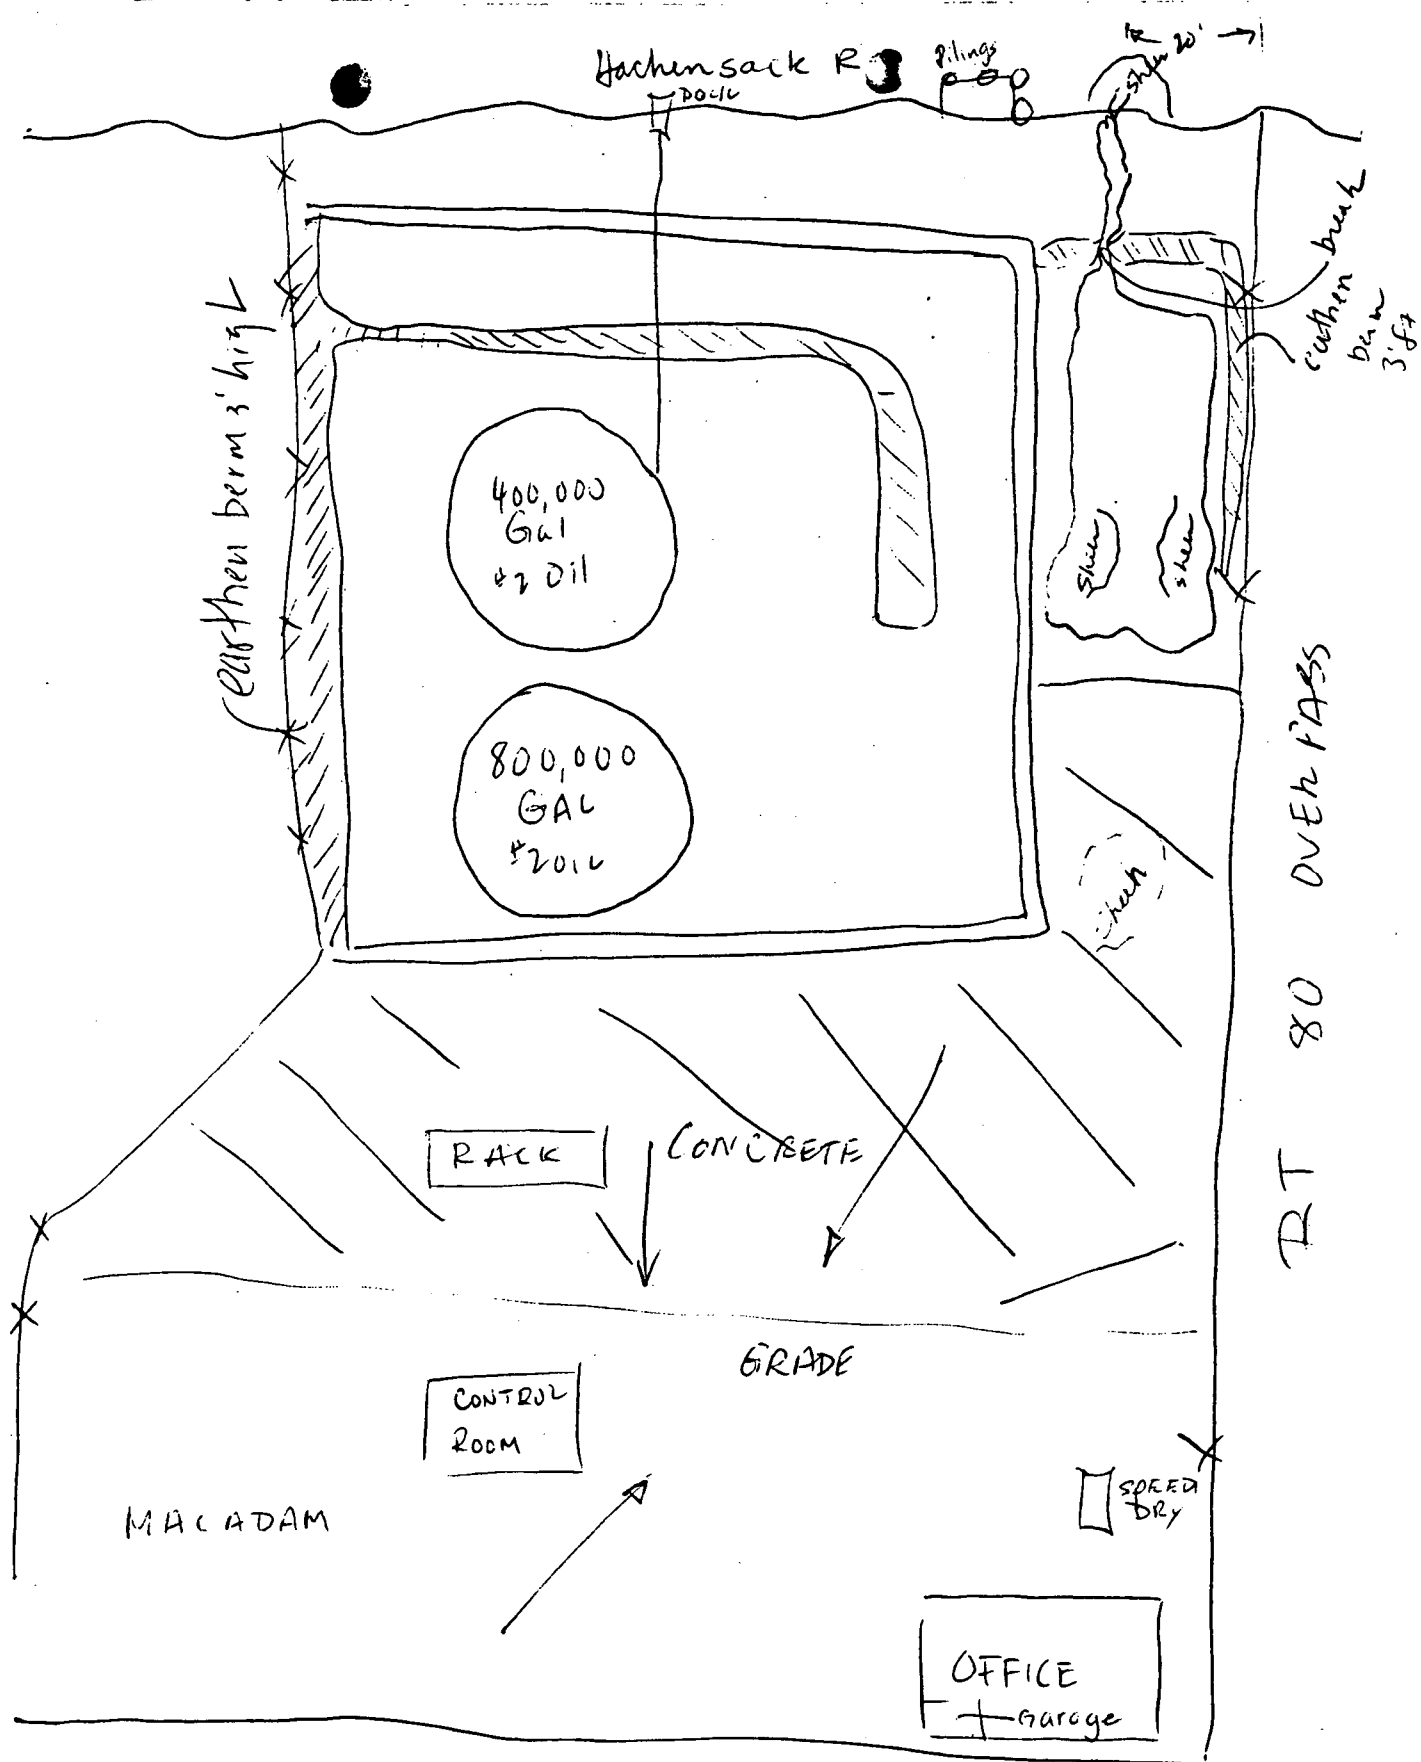 Hachensack R
Pilings
20'
sheen
Dock
break
earthen
berm
3' ft
earthen berm 3' high
400,000
Gal
#2 Oil
sheen
sheen
800,000
GAL
#2 OIL
sheen
RT 80 OVERPASS
RACK
CONCRETE
GRADE
CONTROL
ROOM
SPEED
DRY
MACADAM
OFFICE
Garage